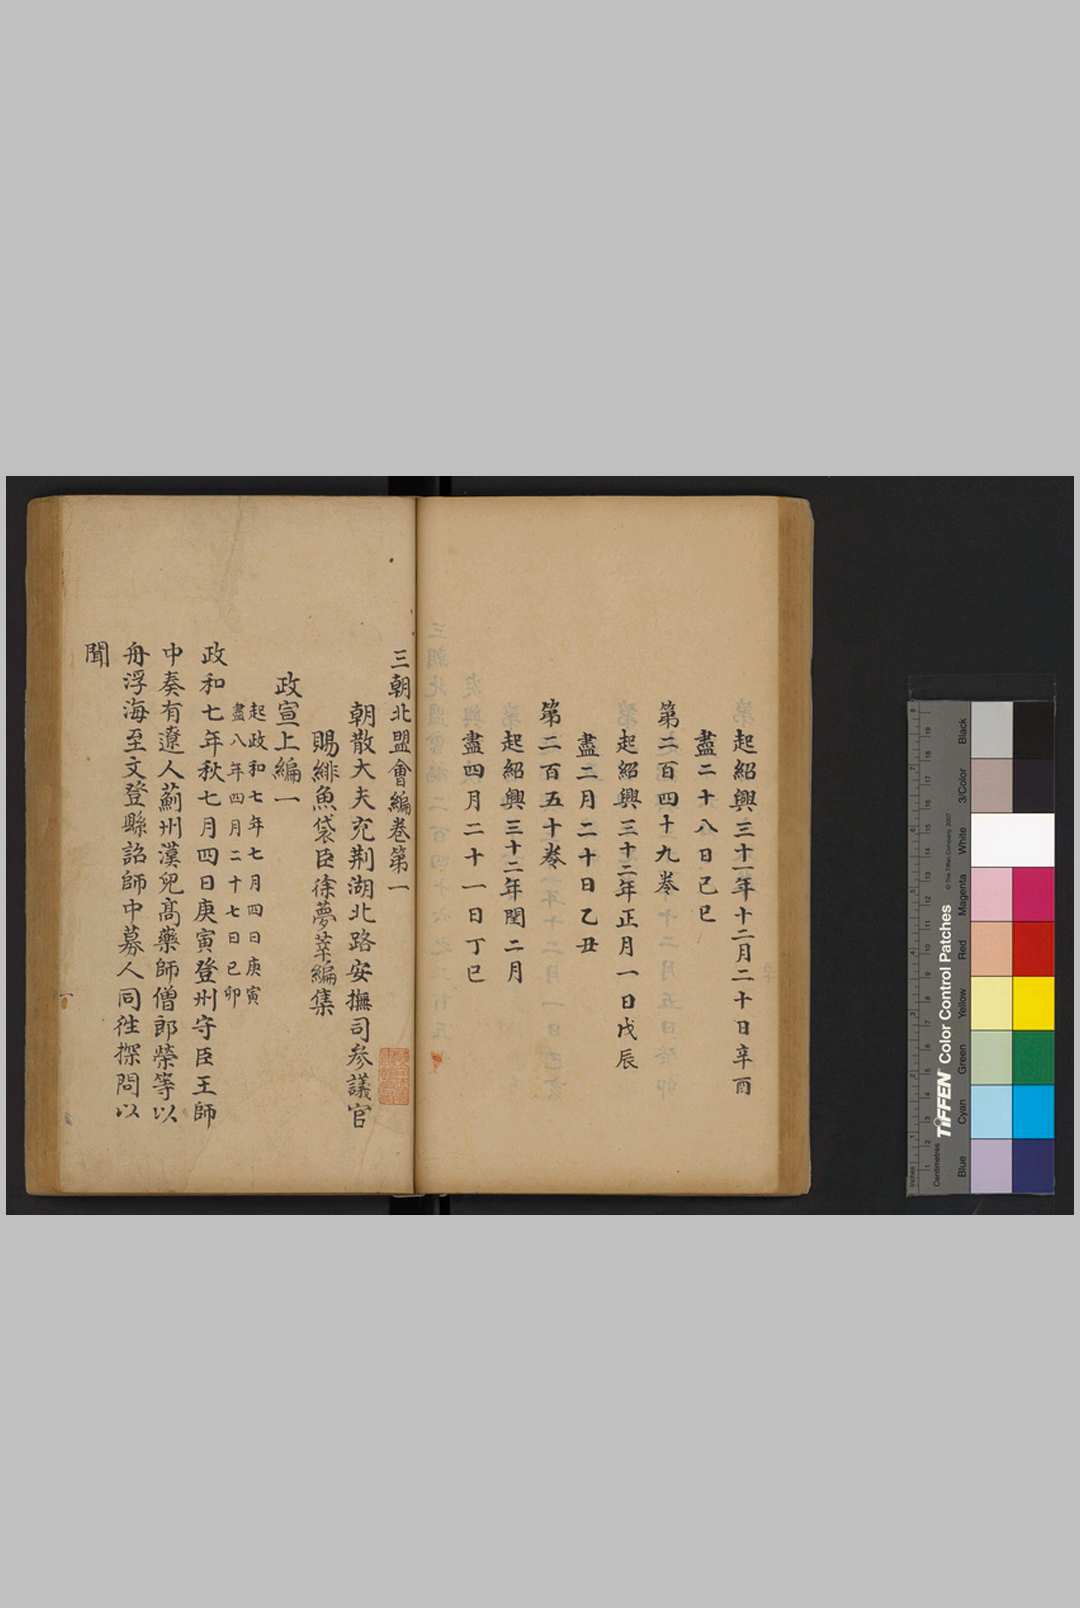 起紹興三十一年十二月二十日辛酉
盡二十八日己巳
第二百四十九卷
起紹興三十二年正月一日戊辰
盡二月二十日乙丑
第二百五十卷
起紹興三十二年閏二月
盡四月二十一日丁巳
三朝北盟會編卷第一
朝散大夫充荆湖北路安撫司參議官
賜緋魚袋臣徐夢莘編集
政宣上編一
起政和七年七月四日庚寅
盡八年四月二十七日己卯
政和七年秋七月四日庚寅登州守臣王師
中奏有遼人薊州漢兒髙藥師僧郎榮等以
舟浮海至文登縣詔師中募人同徃探問以
聞
TIFFEN Color Control Patches
© The Tiffen Company, 2007
Blue
Cyan
Green
Yellow
Red
Magenta
White
3/Color
Black
Inches
Centimetres